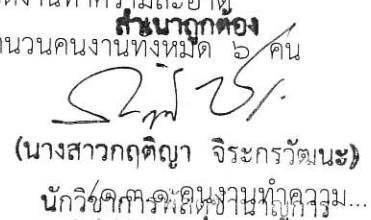 งานทำความสะอาด
สำเนาถูกต้อง
นวนคนงานทั้งหมด ๖ คน
(นางสาวกฤติญา จิระกรวัฒนะ)
นักวิชาการพัสดุชำนาญการ
/๑.๓.๑ คนงานทำความ...